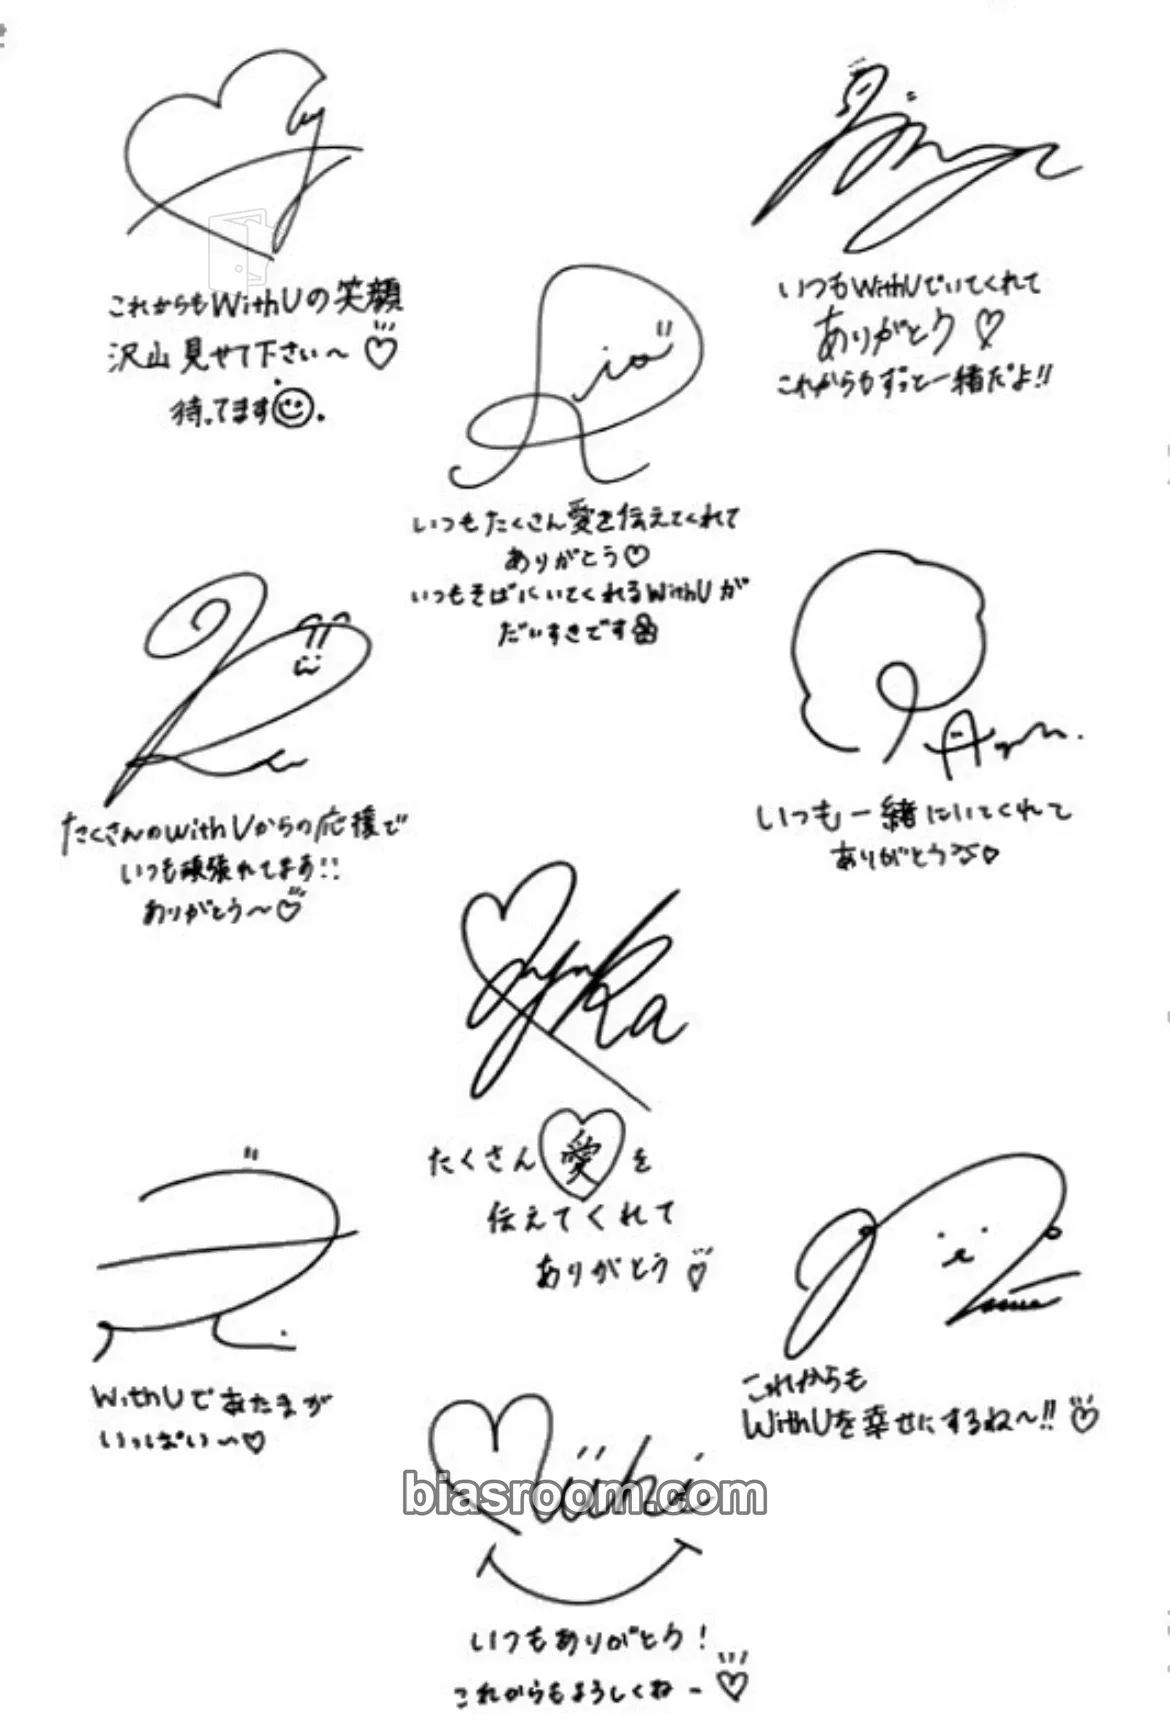 これからもWithUの笑顔
沢山見せて下さい〜♡
待ってます
Rio
いつもWithUでいてくれて
ありがとう♡
これからもずっと一緒だよ!!
いつもたくさん愛を伝えてくれて
ありがとう♡
いつもそばにいてくれるWithUが
だいすきです
たくさんのWithUからの応援で
いつも頑張れてます!!
ありがとう〜♡
Ayaka
いつも一緒にいてくれて
ありがとう♡
たくさん愛を
伝えてくれて
ありがとう♡
WithUで あたまが
いっぱい〜♡
これからも
WithUを幸せにするね〜!!♡
Miihi
biasroom.com
いつもありがとう!
これからもよろしくね〜♡